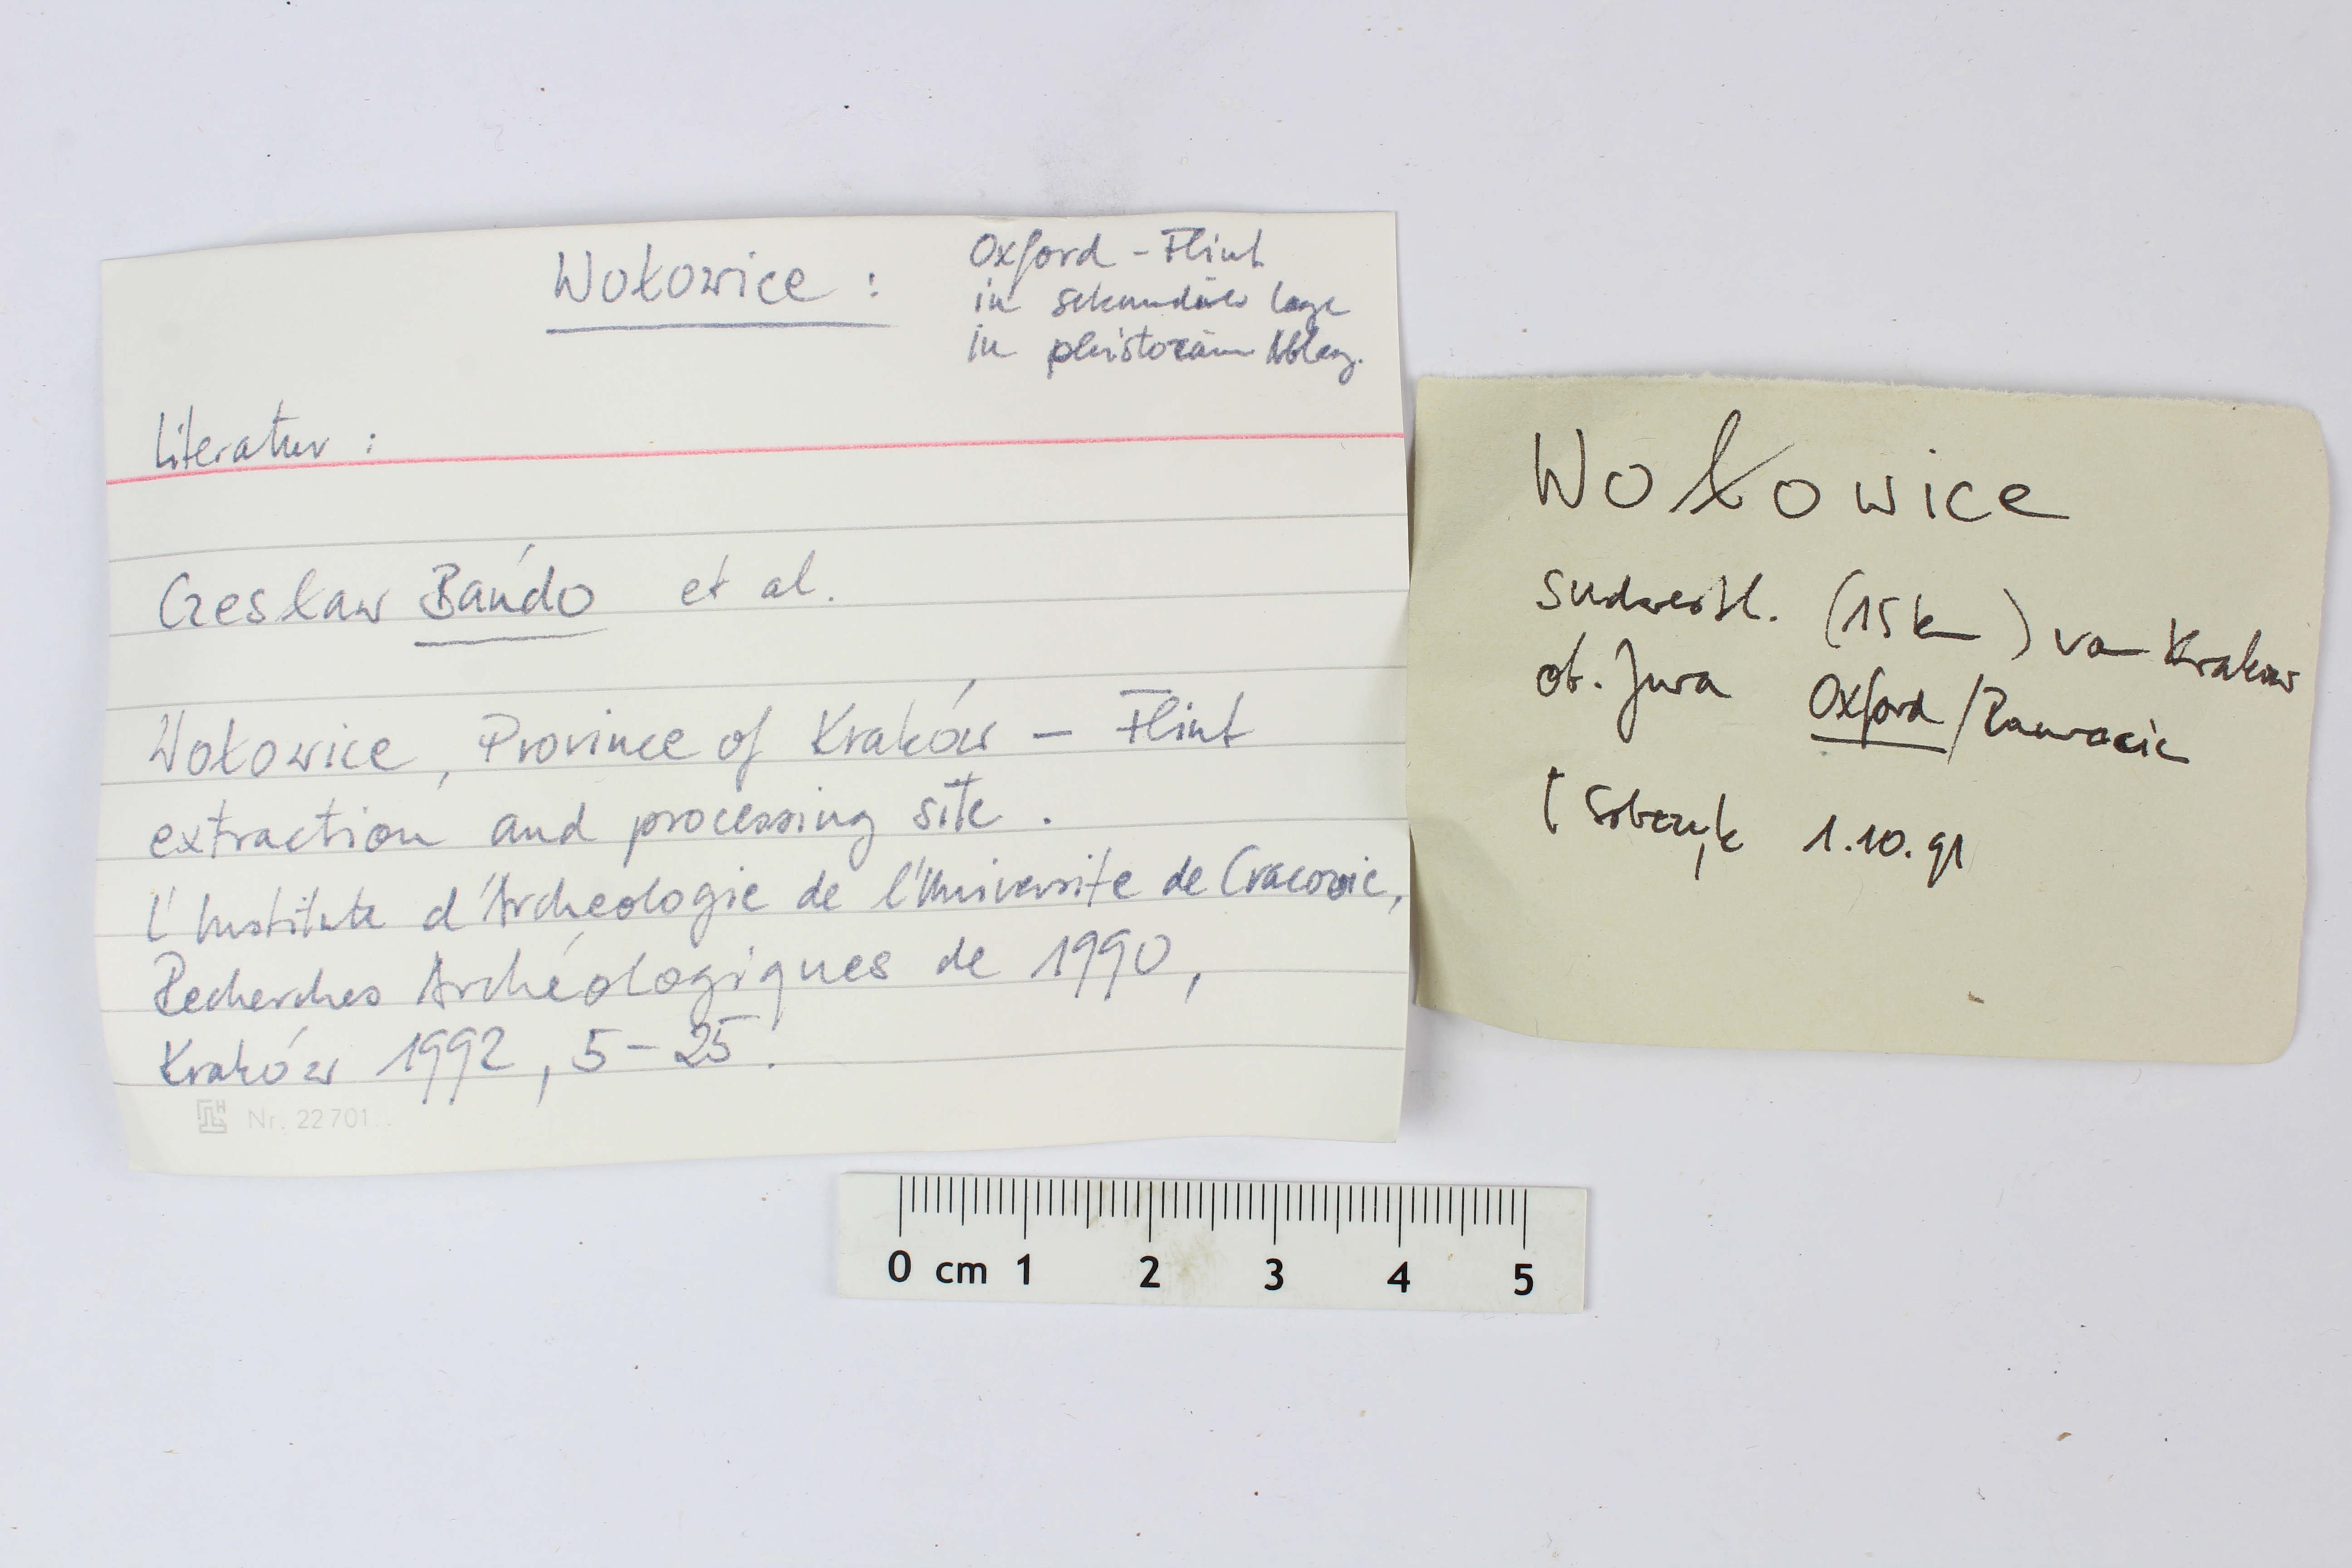 Wołowice :
Oxford - Flint
in sekundärer Lage
in pleistozänen Ablag.
Literatur :
Czesław Bańdo et al.
Wołowice, Province of Kraków – Flint
extraction and processing site.
L'Institute d'Archeologie de l'Universite de Cracovie,
Recherches Archéologiques de 1990,
Kraków 1992, 5-25.
Nr. 22 701
Wołowice
südwestl. (15 km) von Krakow
ob. Jura Oxford/Rauracic
Sobczyk 1.10.91
0 cm 1 2 3 4 5